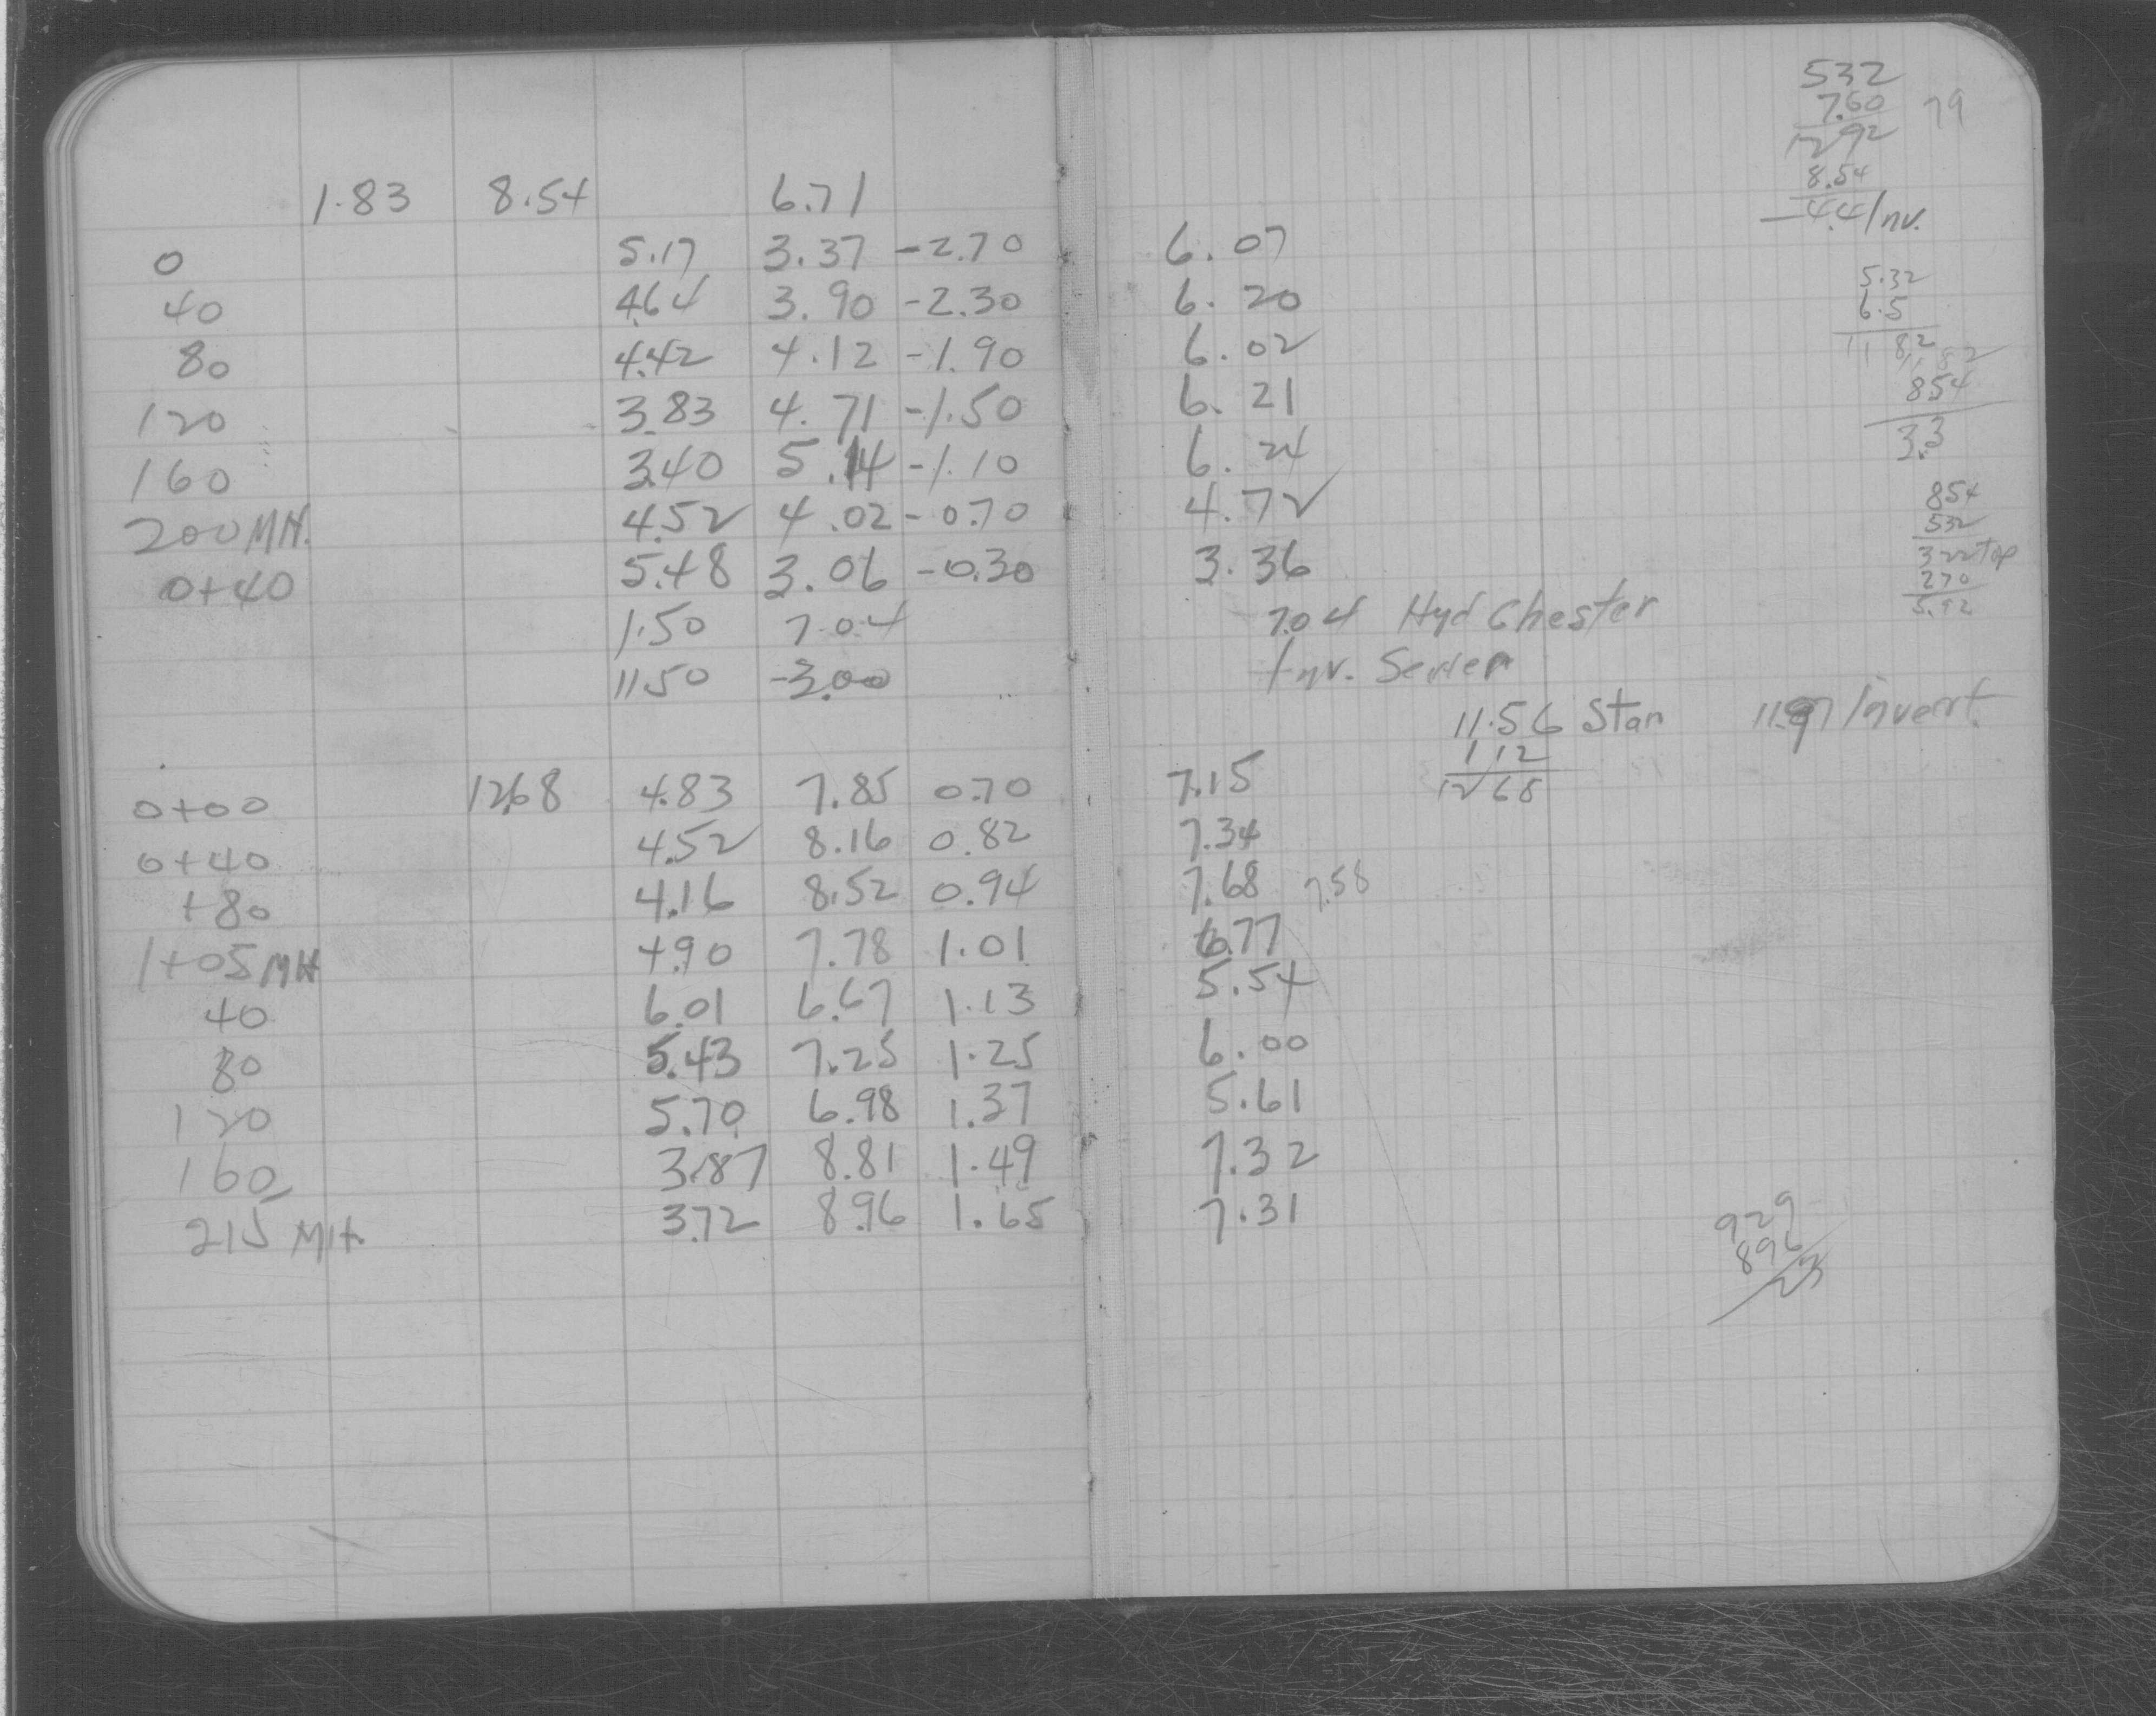 532
7.60 79
1292
1.83 8.54 6.71
8.54
-4.4 Inv.
0 5.17 3.37 -2.70 6.07
40 4.64 3.90 -2.30 6.20
5.32
6.5
80 4.42 4.12 -1.90 6.02
11 82
120 3.83 4.71 -1.50 6.21
854
3.3
160 3.40 5.14 -1.10 6.24
200 MH. 4.52 4.02 -0.70 4.72
854
532
0+40 5.48 3.06 -0.30 3.36
322 Top
270
5.92
1.50 7.04 7.04 Hyd Chester
11.50 -3.00 Inv. Sewer
11.56 Stan Invert
1 12
12 68
0+00 12.68 4.83 7.85 0.70 7.15
0+40 4.52 8.16 0.82 7.34
+80 4.16 8.52 0.94 7.68 7.58
1+05 MH 4.90 7.78 1.01 6.77
40 6.01 6.67 1.13 5.54
80 5.43 7.25 1.25 6.00
120 5.70 6.98 1.37 5.61
160 3.87 8.81 1.49 7.32
215 MH. 3.72 8.96 1.65 7.31
929
896